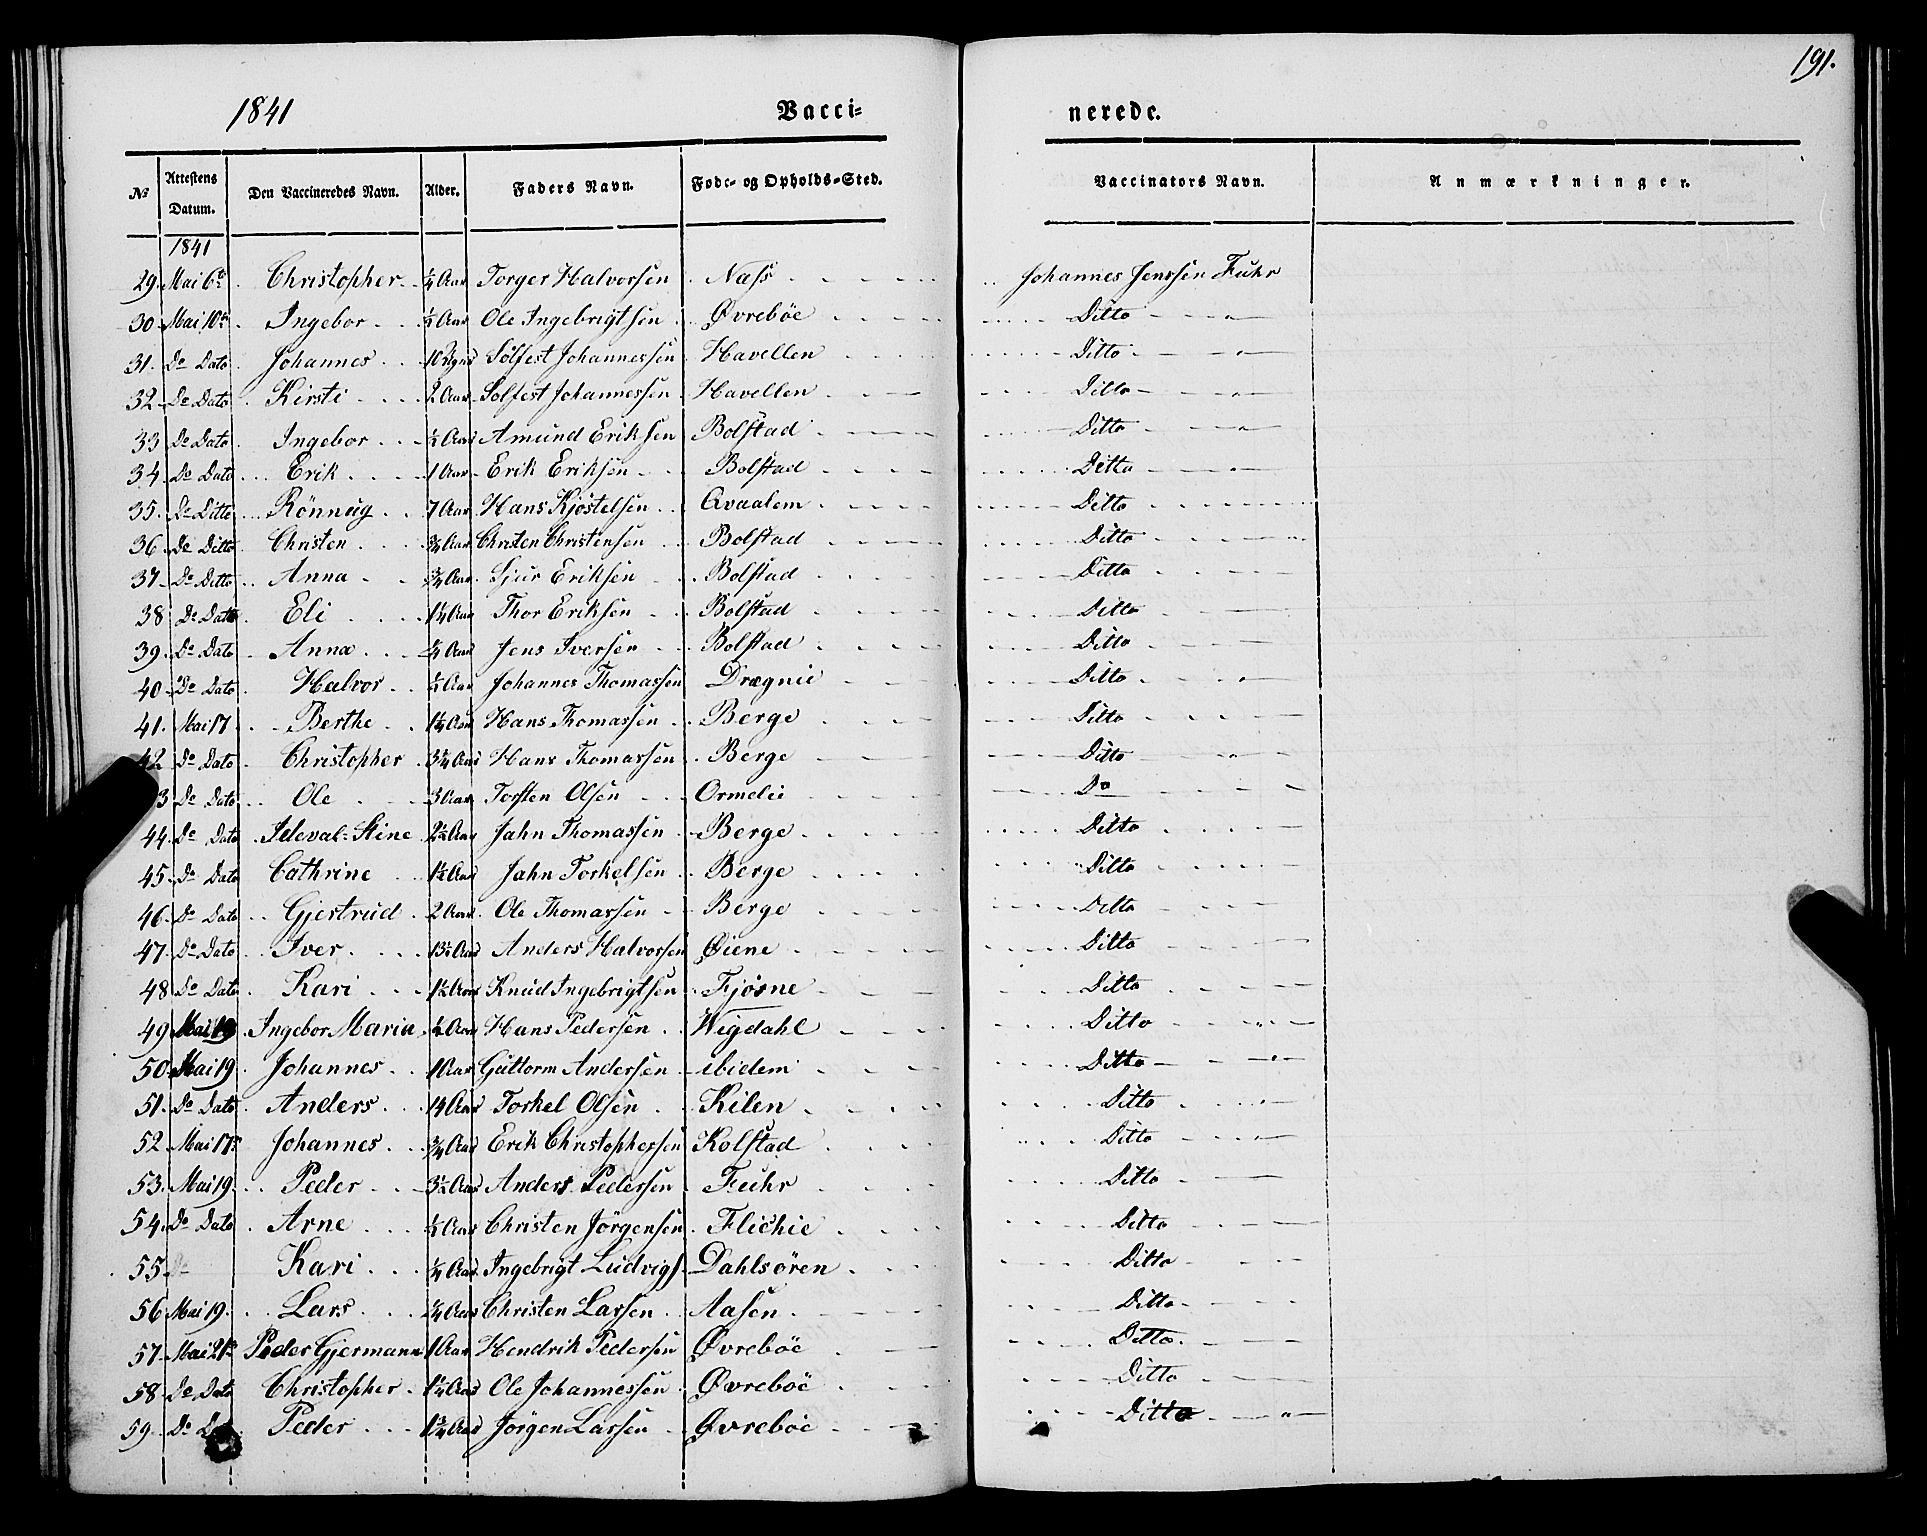 191.
1841 Vacci= nerede.
No Attestens Datum. Den Vaccineredes Navn. Alder. Faders Navn. Fode- og Opholds-Sted. Vaccinators Navn. Anmærkninger.
1841
29. Mai 6te Christopher ¼ Aar Torger Halvorsen Næss Johannes Jenssen Fuhr
30 Mai 10de Ingebor ½ Aar Ole Ingebrigtsen Øvrebøe Ditto
31. Do Dato Johannes 10 Solfest Johannessen Havellen Ditto
32 Do Dato Kirsti 2 Aar Solfest Johannessen Havellen Ditto
33 Do Dato Ingebor ½ Aar Amund Eriksen Bolstad Ditto
34 Do Dato Erik 1 Aar Erik Eriksen Bolstad Ditto
35. Do Ditto Rönnug 7 Aar Hans Kjöstelsen Qvaalem Ditto
36 De Ditto Christen ¾ Aar Christen Christensen Bolstad Ditto
37 Do Ditto Anna ¾ Aar Sjur Eriksen Bolstad Ditto
38 Do Dato Eli 1¼ Aar Thor Eriksen Bolstad Ditto
39. Do Dato Anna ¼ Aar Jens Iversen Bolstad Ditto
40 Do Dato Halvor ¼ Aar Johannes Thomassen Drægnie Ditto
41. Mai 17 Berthe 1¼ Aar Hans Thomassen Berge Ditto
42 Do Dato Christopher 3¼ Aar Hans Thomassen Berge Ditto
3 Do Dato Ole 3 Aar Torsten Olsen Ormelie Do
44 Do Dato Ideval-Stine 2½ Aar Jahn Thomassen Berge Ditto
45. Do Dato Cathrine 1½ Aar Jahn Torkelsen Berge Ditto
46 Do Dato Gjertrud 2 Aar Ole Thomassen Berge Ditto
47. Do Dato Iver 13½ Aar Anders Halvorsen Øiene Ditto
48 Do Dato Kari 1½ Aar Knud Ingebrigtsen Fjösne Ditto
49 Mai 19 Ingebor Maria ½ Aar Hans Pedersen Wigdahl Ditto
50 Mai 19. Johannes 1 Aar Guttorm Andersen ibidem Ditto
51. Do Dato Anders 14 Aar Torkel Olsen Kilen Ditto
52 Mai 17de Johannes ¾ Aar Erik Christophersen Kolstad Ditto
53. Mai 19. Peder 3½ Aar Anders Pedersen Fuhr Ditto
54. Do Dato Arne ½ Aar Christen Jörgensen Flichie Ditto
55 Do Kari ¼ Aar Ingebrigt Ludvigs. Dahlsören Ditto
56 Mai 19. Lars ¼ Aar Christen Larsen Aasen Ditto
57. Mai 21de Peder Gjermann 1 Aar Hendrik Pedersen Øvrebøe Ditto
58 De Dato Christopher 1¼ Aar Ole Johannessen Øvrebøe Ditto
59. Do Peder 1¾ Aar Jörgen Larsen Øvrebøe Ditto